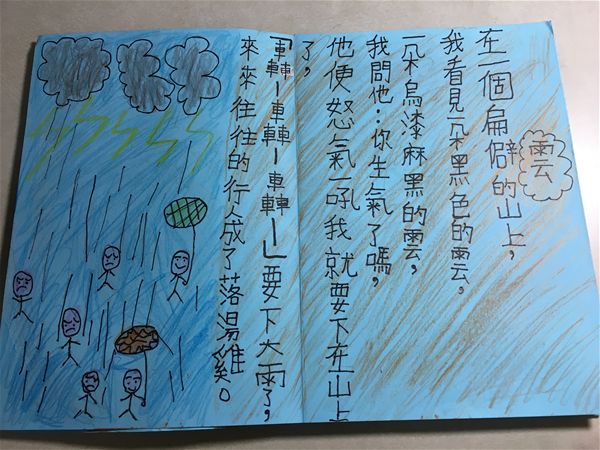 雲
在一個扁僻的山上，
我看見一朵黑色的雲。
一朵烏漆麻黑的雲，
我問他：你生氣了嗎，
他便怒氣一吼我就要下在山上
了，
「轟ー轟ー轟ー」要下大雨了，
來來往往的行人成了落湯雞。